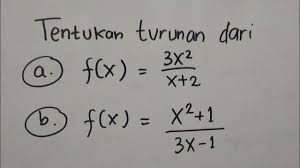 Tentukan turunan dari
a. f(x) = 3x²/x+2
b. f(x) = x²+1/3x-1